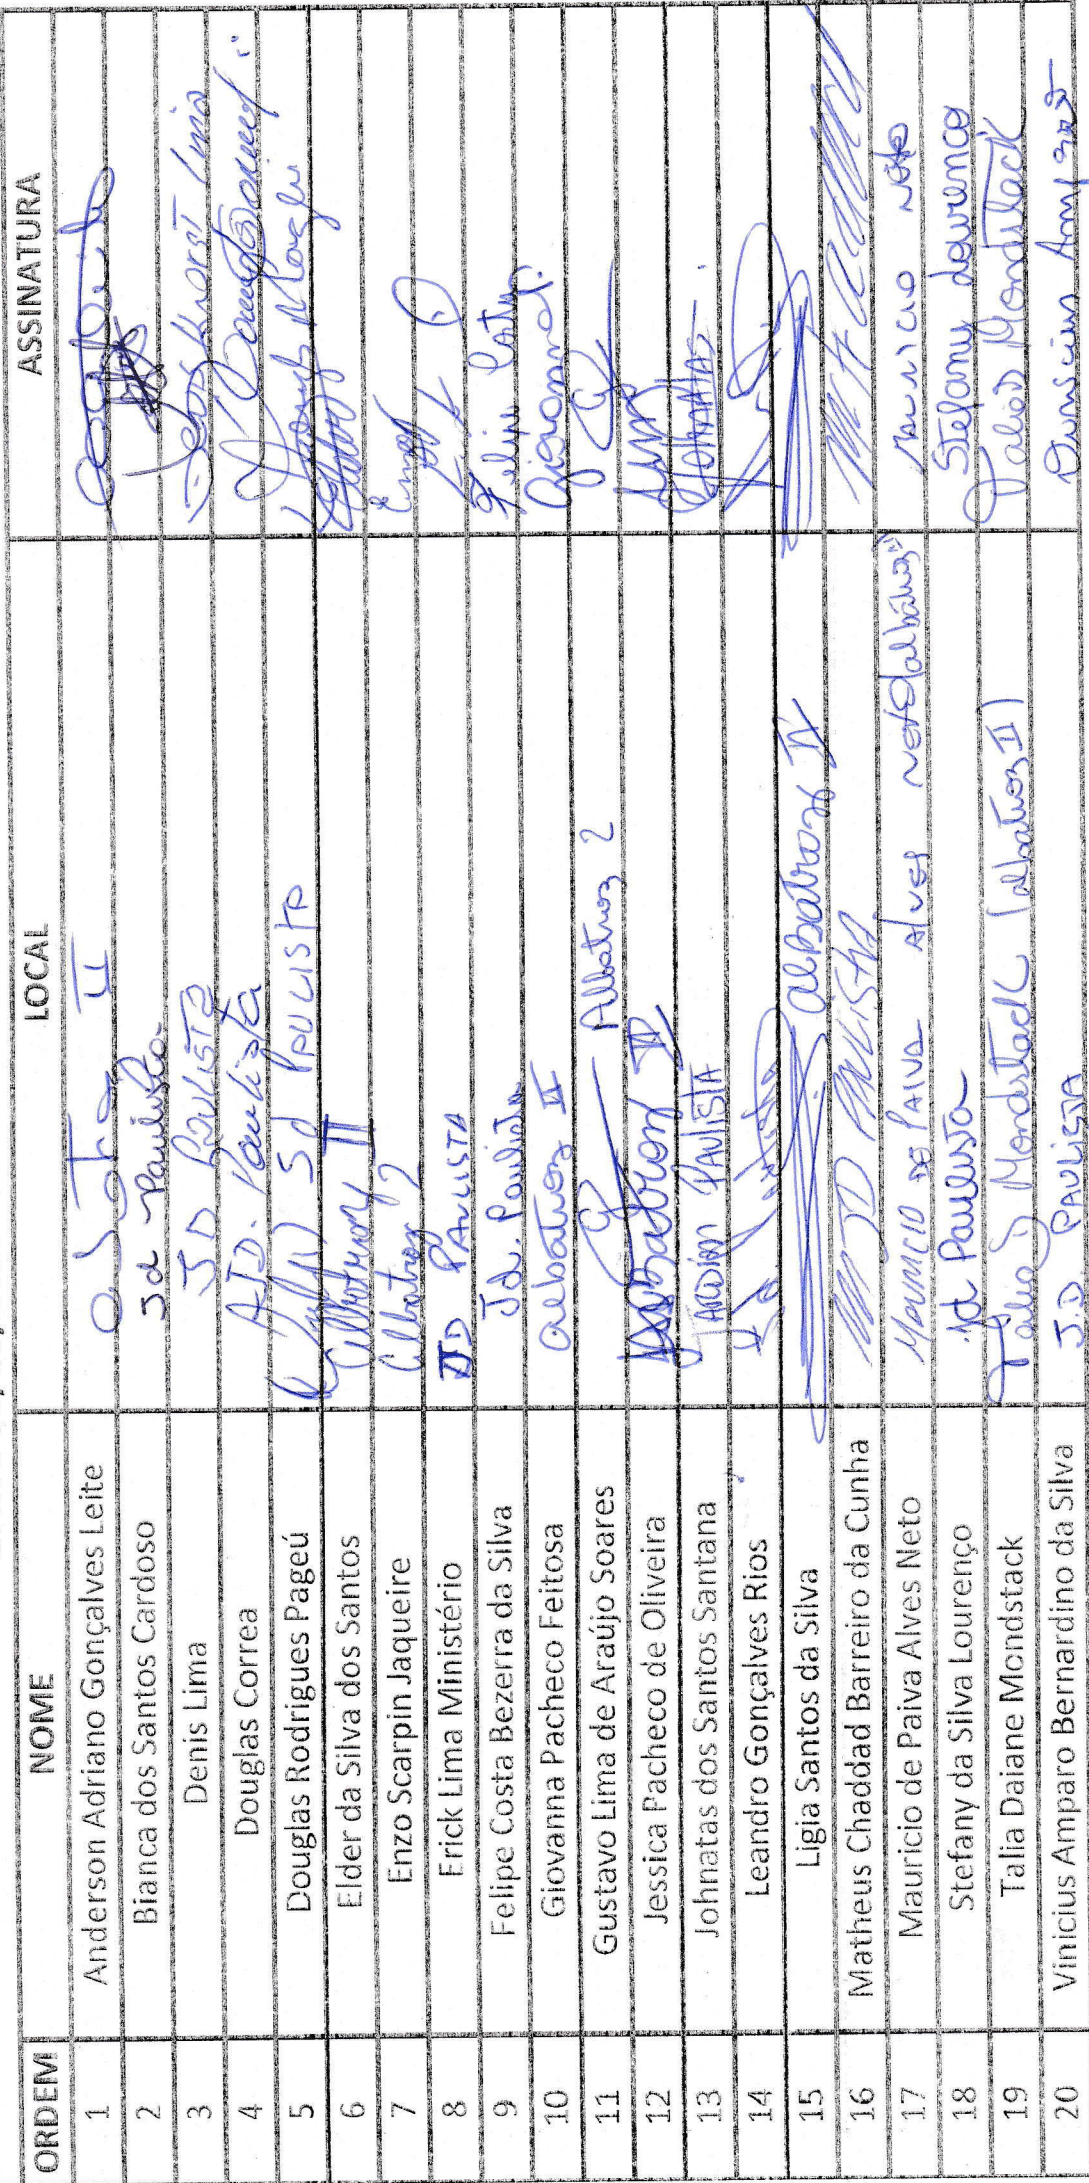 ORDEM NOME LOCAL ASSINATURA
1 Anderson Adriano Gonçalves Leite
2 Bianca dos Santos Cardoso Jd Paulista
3 Denis Lima JD PAULISTA Lima
4 Douglas Correa JD. Paulista
5 Douglas Rodrigues Pageú Jd PAULISTA
6 Elder da Silva dos Santos Albatroz II
7 Enzo Scarpin Jaqueire Albatroz 2 Enzo
8 Erick Lima Ministério JD PAULISTA
9 Felipe Costa Bezerra da Silva Jd. Paulista Felipe Costa
10 Giovanna Pacheco Feitosa albatroz II Giovanna
11 Gustavo Lima de Araújo Soares Albatroz 2
12 Jessica Pacheco de Oliveira
13 Johnatas dos Santos Santana JARDIM PAULISTA JOHNATAS
14 Leandro Gonçalves Rios
15 Ligia Santos da Silva
16 Matheus Chaddad Barreiro da Cunha JD PAULISTA
17 Mauricio de Paiva Alves Neto MAURICIO DE PAIVA Alves Neto Mauricio Neto
18 Stefany da Silva Lourenço Jd Paulista Stefany Lourenço
19 Talia Daiane Mondstack Talia Mondstack (albatroz II) Talia Mondstack
20 Vinicius Amparo Bernardino da Silva J.D. PAULISTA Vinicius Amparo